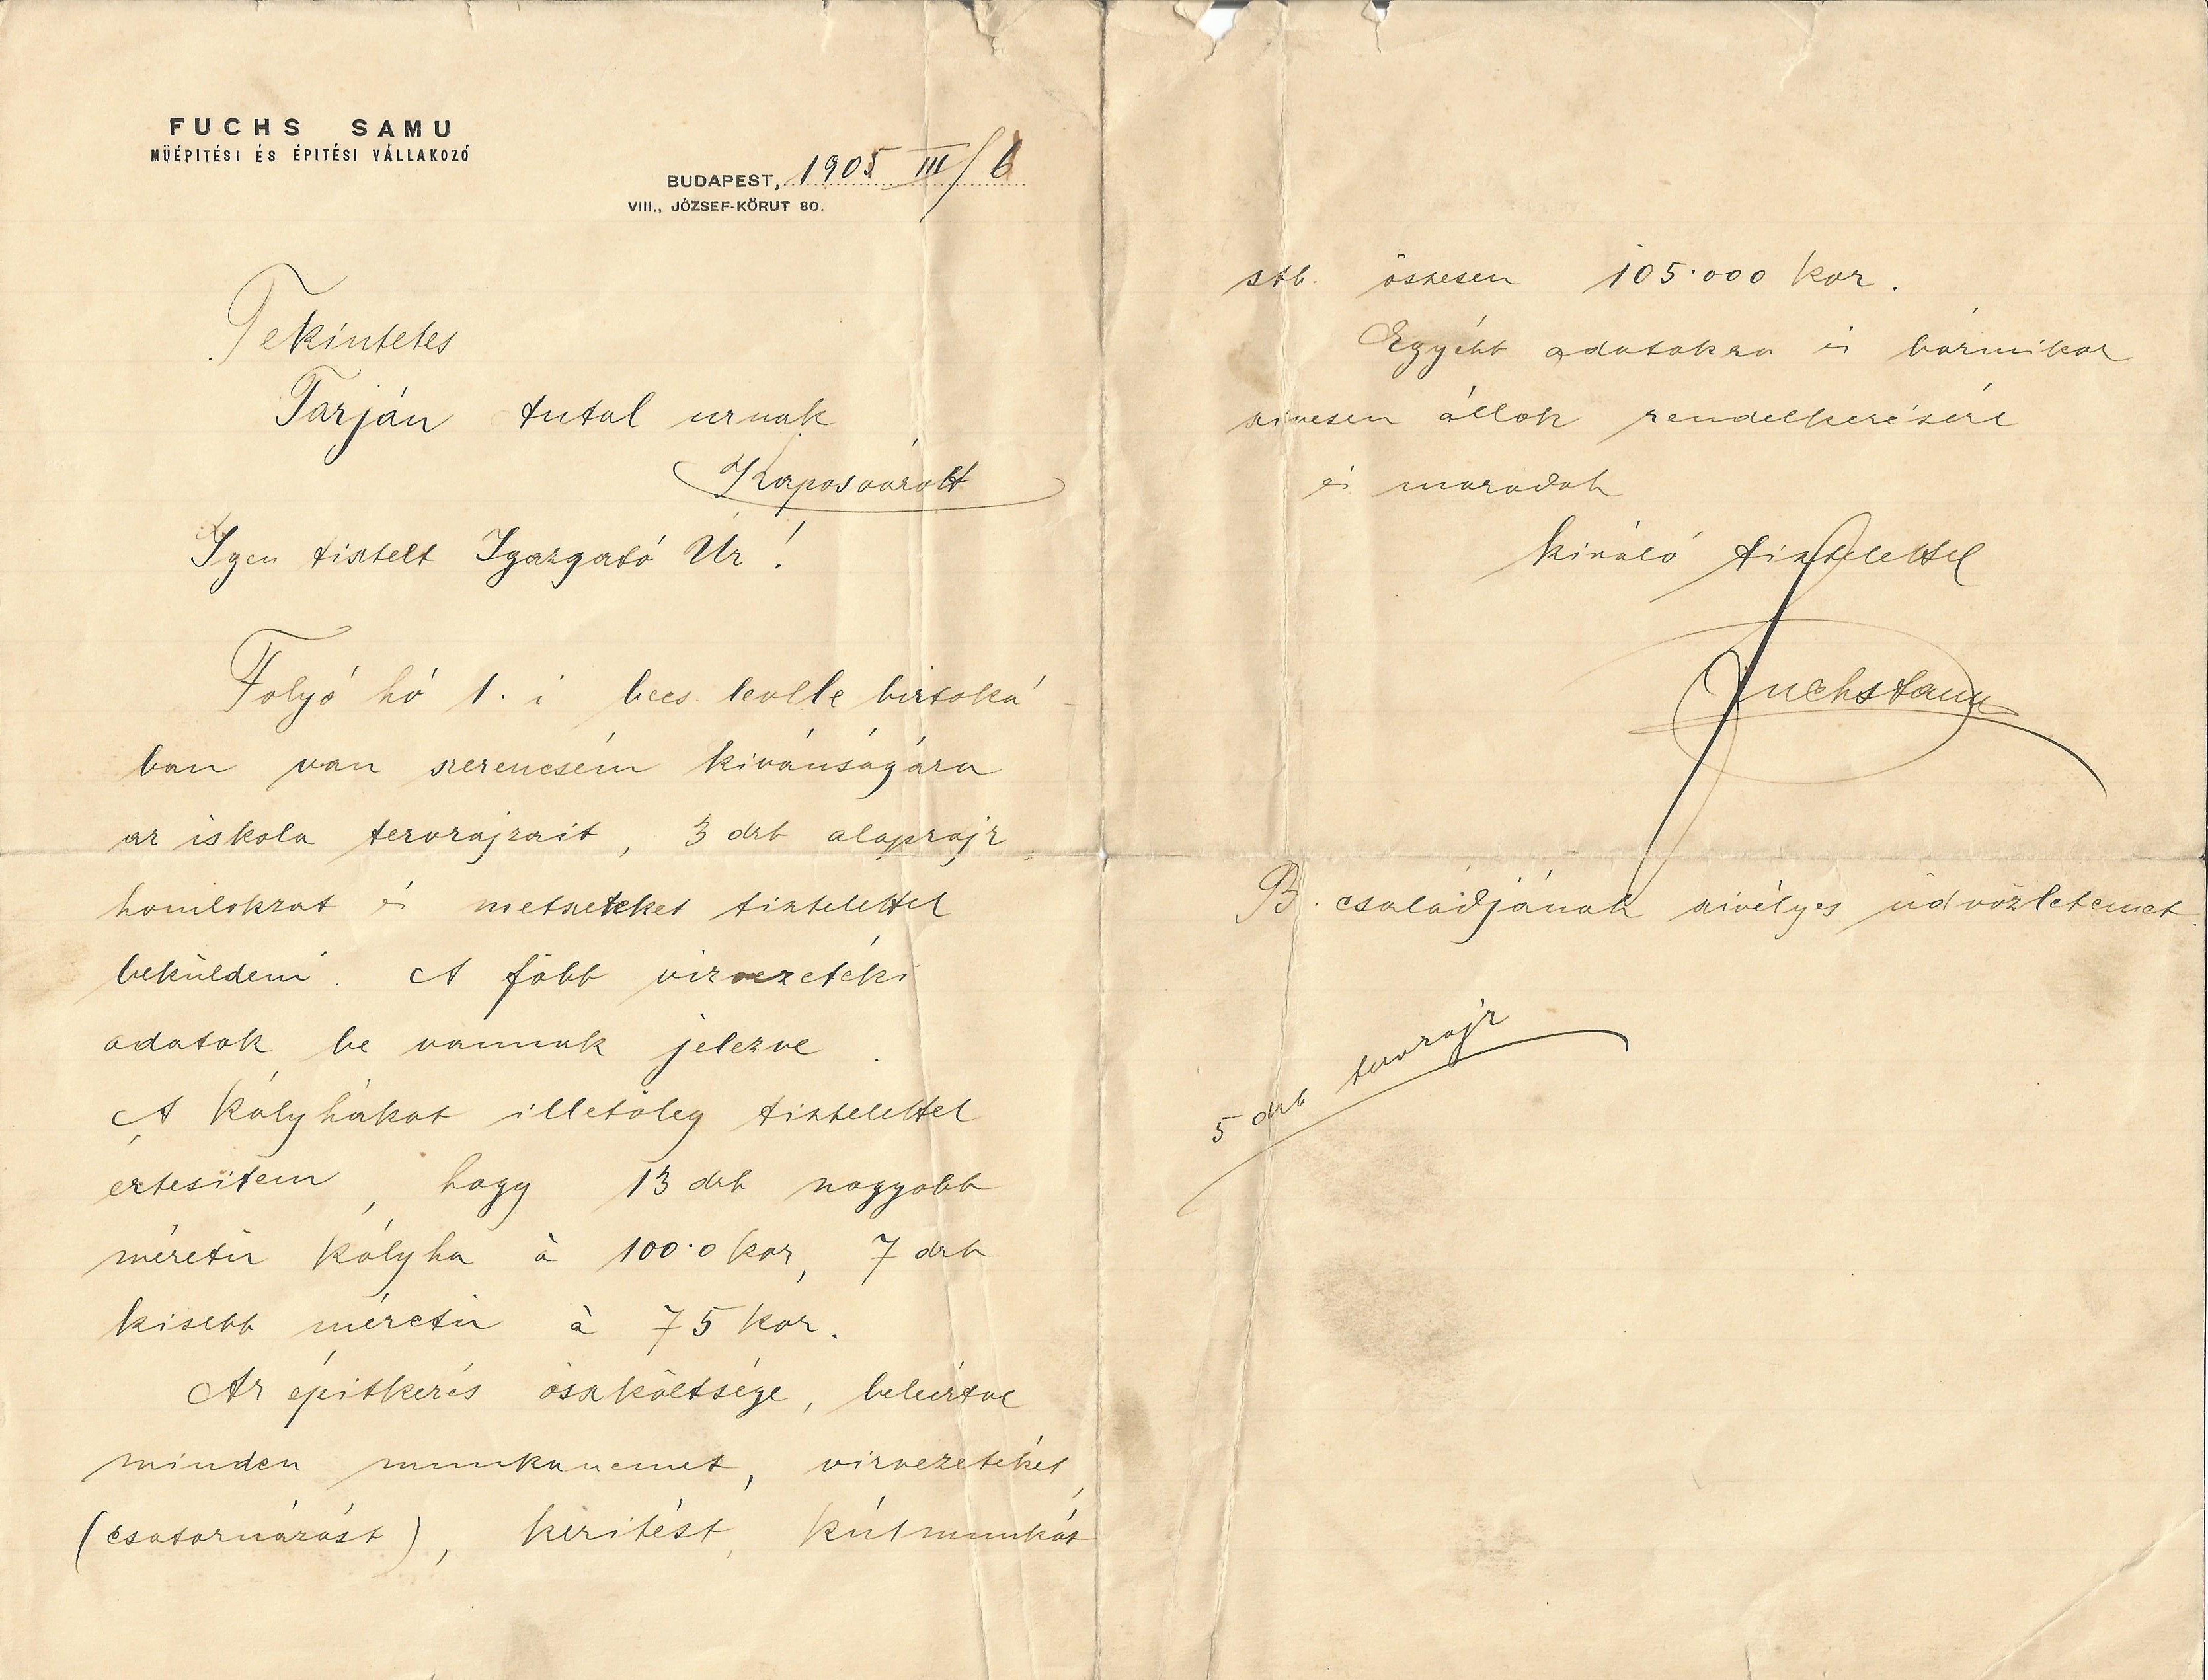 FUCHS SAMU
MŰÉPITÉSI ÉS ÉPITÉSI VÁLLAKOZÓ
BUDAPEST, 1905 III/6
VIII., JÓZSEF-KÖRUT 80.
Tekintetes
Tarján Antal urnak
Kaposvárott
Igen tisztelt Igazgató Úr!
Folyó hó 1. i becs. levelle birtoká
ban van szerencsém kivánságára
az iskola tervrajzait, 3 drb alaprajz
homlokzat és metszeteket tisztelettel
beküldeni. A főbb vizvezetéki
adatok be vannak jelezve.
A Kályhákat illetőleg tisztelettel
értesitem, hogy 13 drb nagyobb
méretü Kályha à 100·0 kor, 7 drb
kisebb méretü à 75 kor.
Az épitkezés összköltsége, beleértve
minden munkanemet, vizvezetéket,
(csatornázást), keritést, kútmunkát
stb. összesen 105·000 kor.
Egyébb adatokra is bármikor
szivesen állok rendelkezésére
és maradok
kiváló tisztelettel
Fuchs Samu
B. családjának szivélyes üdvözletemet
5 drb tervrajz